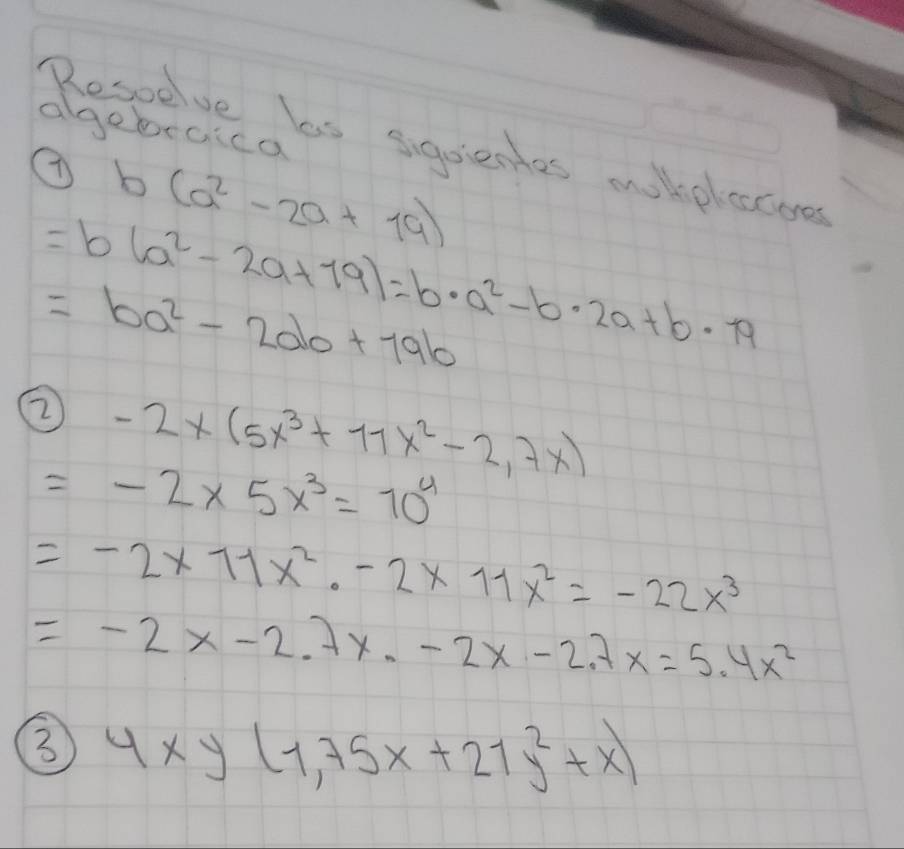 Resuelve las siguientes multiplicaciones
algebraica
① b (a² - 2a + 19)
= b (a² - 2a + 19) = b · a² - b · 2a + b · 19
= ba² - 2ab + 19b
② -2x (5x³ + 11x² - 2,7x)
= -2x 5x³ = 10⁴
= -2x 11x² . -2x 11x² = -22x³
= -2x -2.7x . -2x -2.7x = 5.4x²
③ 4xy (1,75x + 21y² + x)